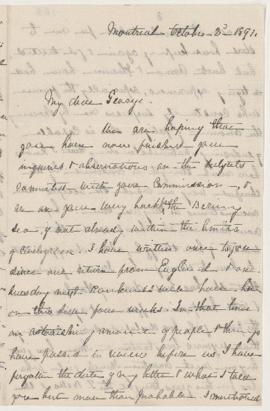 Montreal October 2nd 1891.
My dear George.
We are hoping that
you have now finished your
inquiries & observations on the subjects
connected with your Commission - &
are on your way back, the Behring
sea, if not already within the limits
of civilization. I have written once to you
since our return from England & are
on this side four weeks. In that time
an astonishing amount of people & things
have passed in review before us. I have
forgotten the date of my letter & what I told
you but more than probable I mentioned